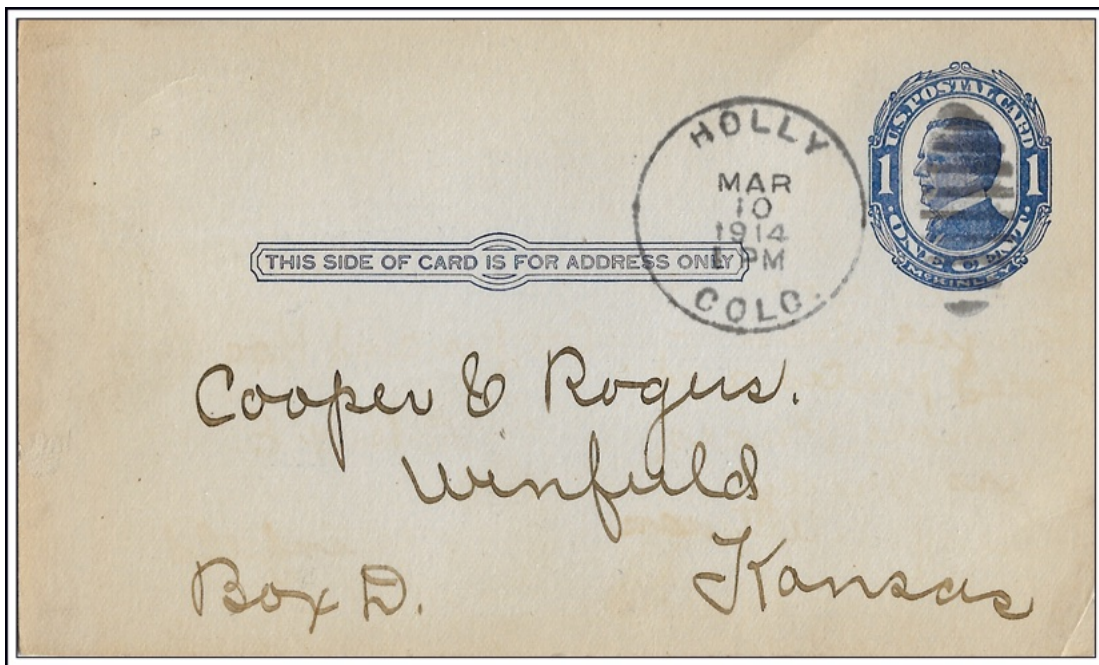 U.S. POSTAL CARD
1 1
ONE CENT.
McKINLEY
HOLLY
MAR
10
1914
PM
COLO.
THIS SIDE OF CARD IS FOR ADDRESS ONLY
Cooper & Rogers.
Winfield
Box D.
Kansas